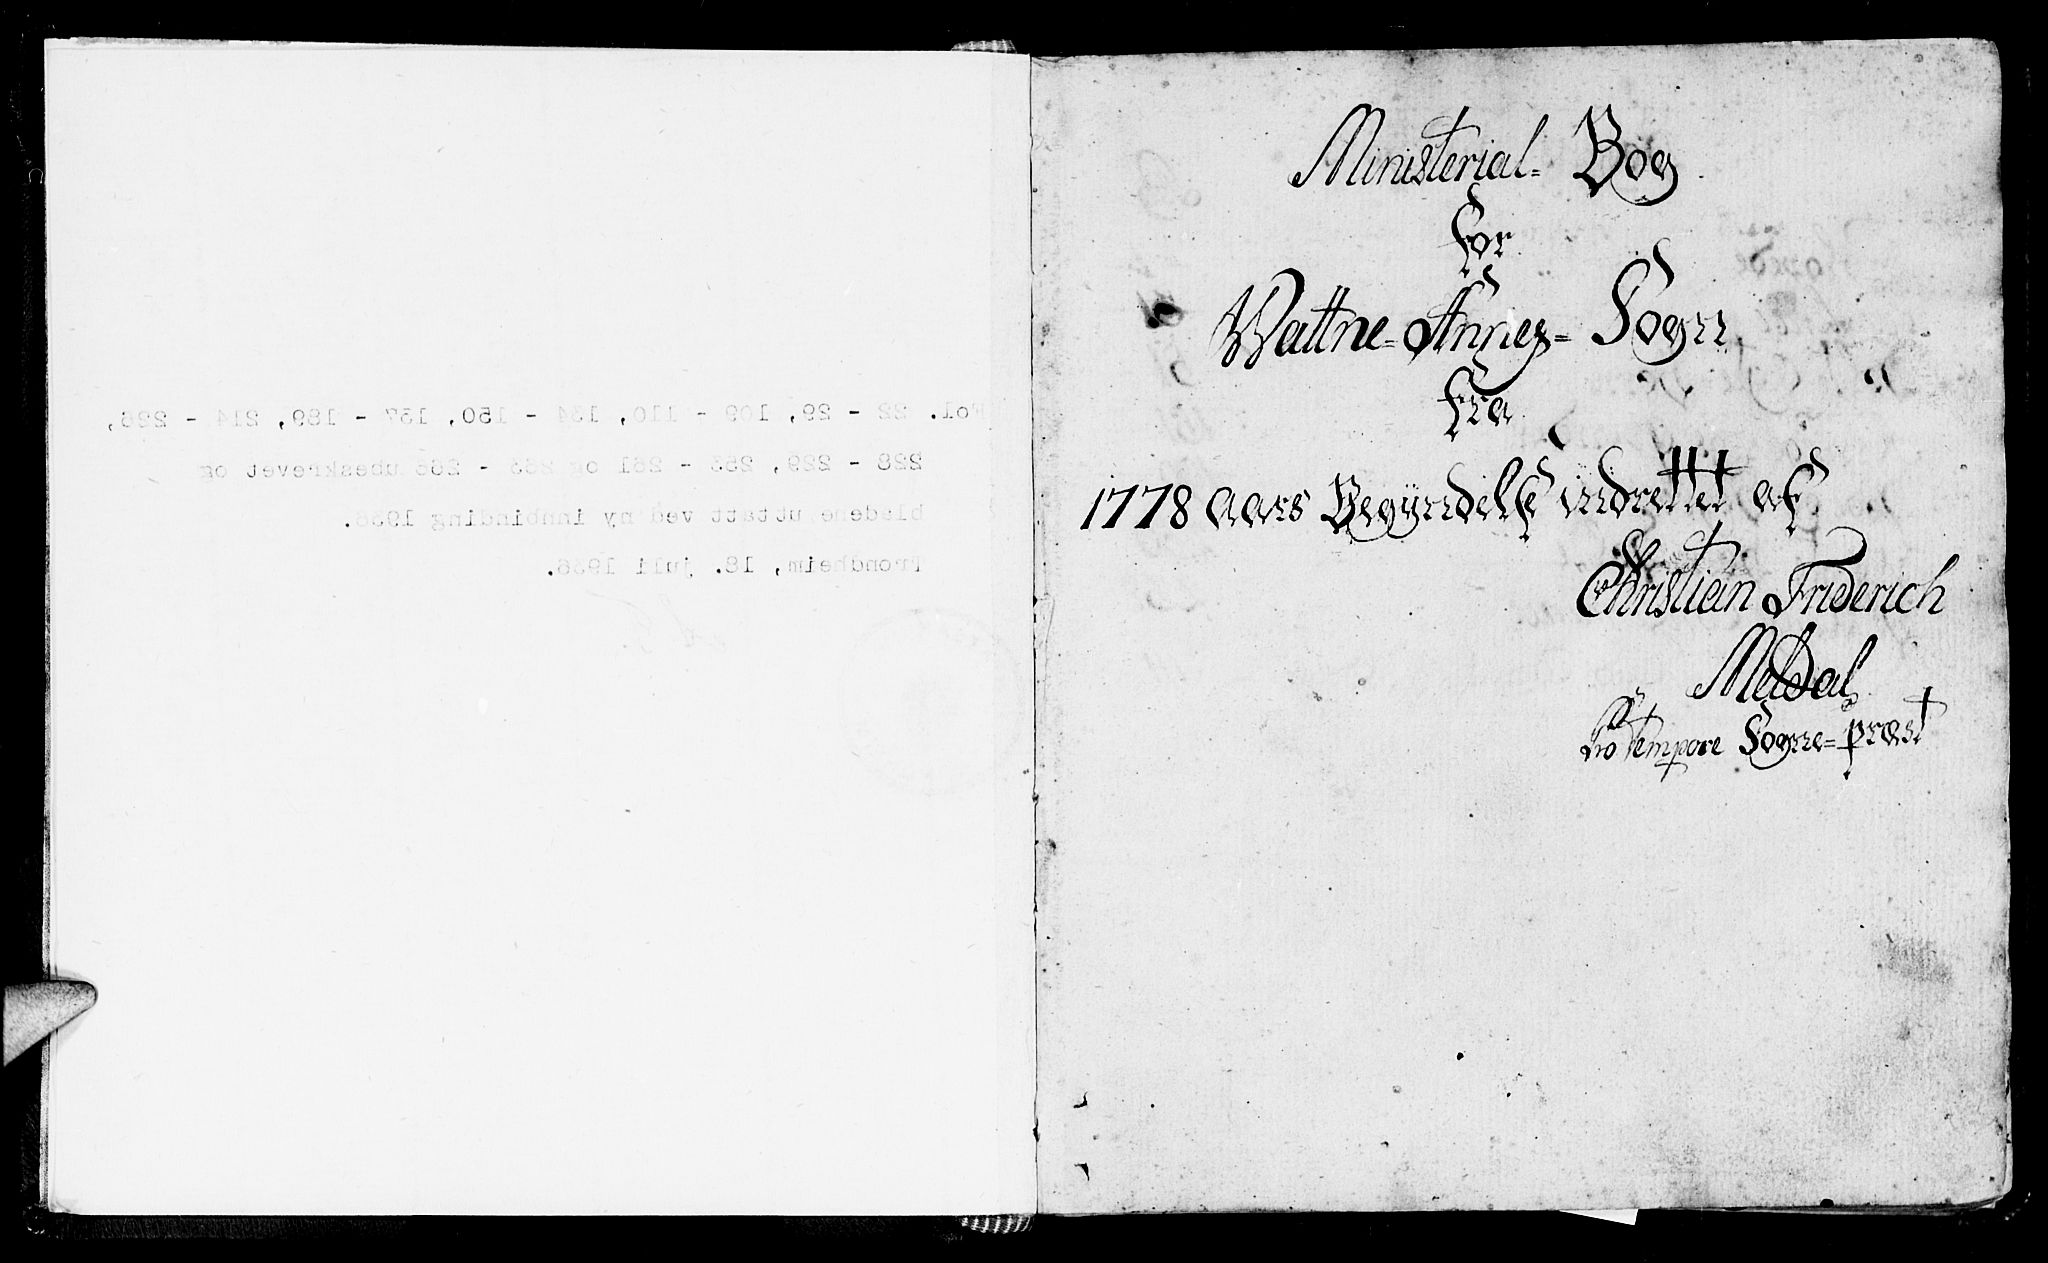 Fol. 22 - 29, 109 - 110, 134 - 150, 137 - 189, 214 - 226,
228 - 229, 253 - 261 og 263 - 266 ubeskrevet og
bladene uttatt ved ny innbinding 1936.
Trondheim, 18. juli 1936.
Ministerial= Bog
for
Wattne=Annex= Sogn
fra
1778 aars Begÿndelse indrettet af
Christian Friderich
Meldal
Pro tempore Sogne=præst